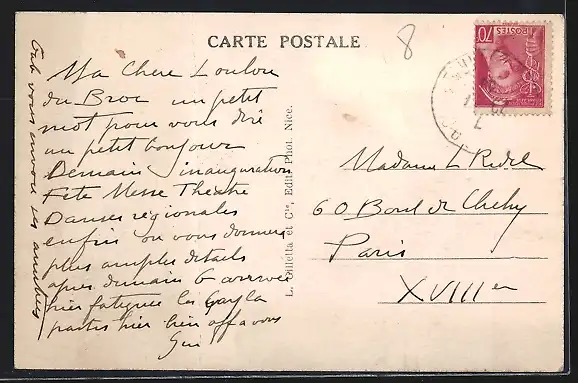 CARTE POSTALE
8
70
POSTES
Ma Chere Loulou
du Broc un petit
mot pour vous dire
un petit bonjour
Demain inauguration
Fete Messe Théatre
Danses régionales
enfin on vous donnera
plus amples details
apres demain
hier fatiguée les
parties hier bien aff a vous
L. Gilletta et Cie, Edit. Phot. Nice.
Madame L Redel
60 Boul de Clichy
Paris
XVIIIer